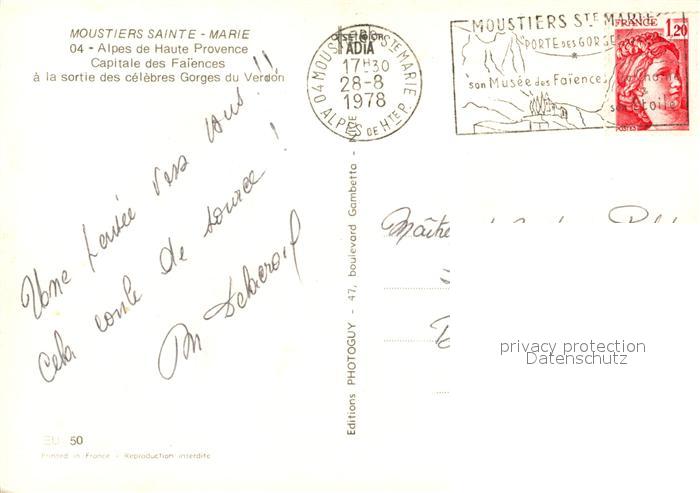 MOUSTIERS SAINTE - MARIE
04 - Alpes de Haute Provence
Capitale des Faïences
à la sortie des célèbres Gorges du Verdon
04 MOUSTIERS STE MARIE
17H30
28-8
1978
ALPES DE HTE P.
MOUSTIERS STE MARIE
PORTE DES GORGES
son Musée des Faïences
son Étoile
FRANCE
1,20
POSTES
Une pensée vers vous !!
cela coule de source !
M Delacroix
Editions PHOTOGUY - 47, boulevard Gambetta -
Maître
privacy protection
Datenschutz
EU 50
Printed in France - Reproduction interdite